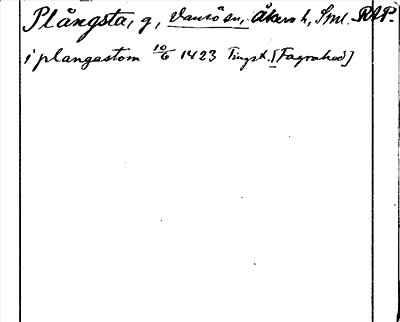 Plångsta, g, Vansö sn, Åkers h, Sml. RAP.
i plangastom 10/6 1423 Tingst. [Fagrahed]